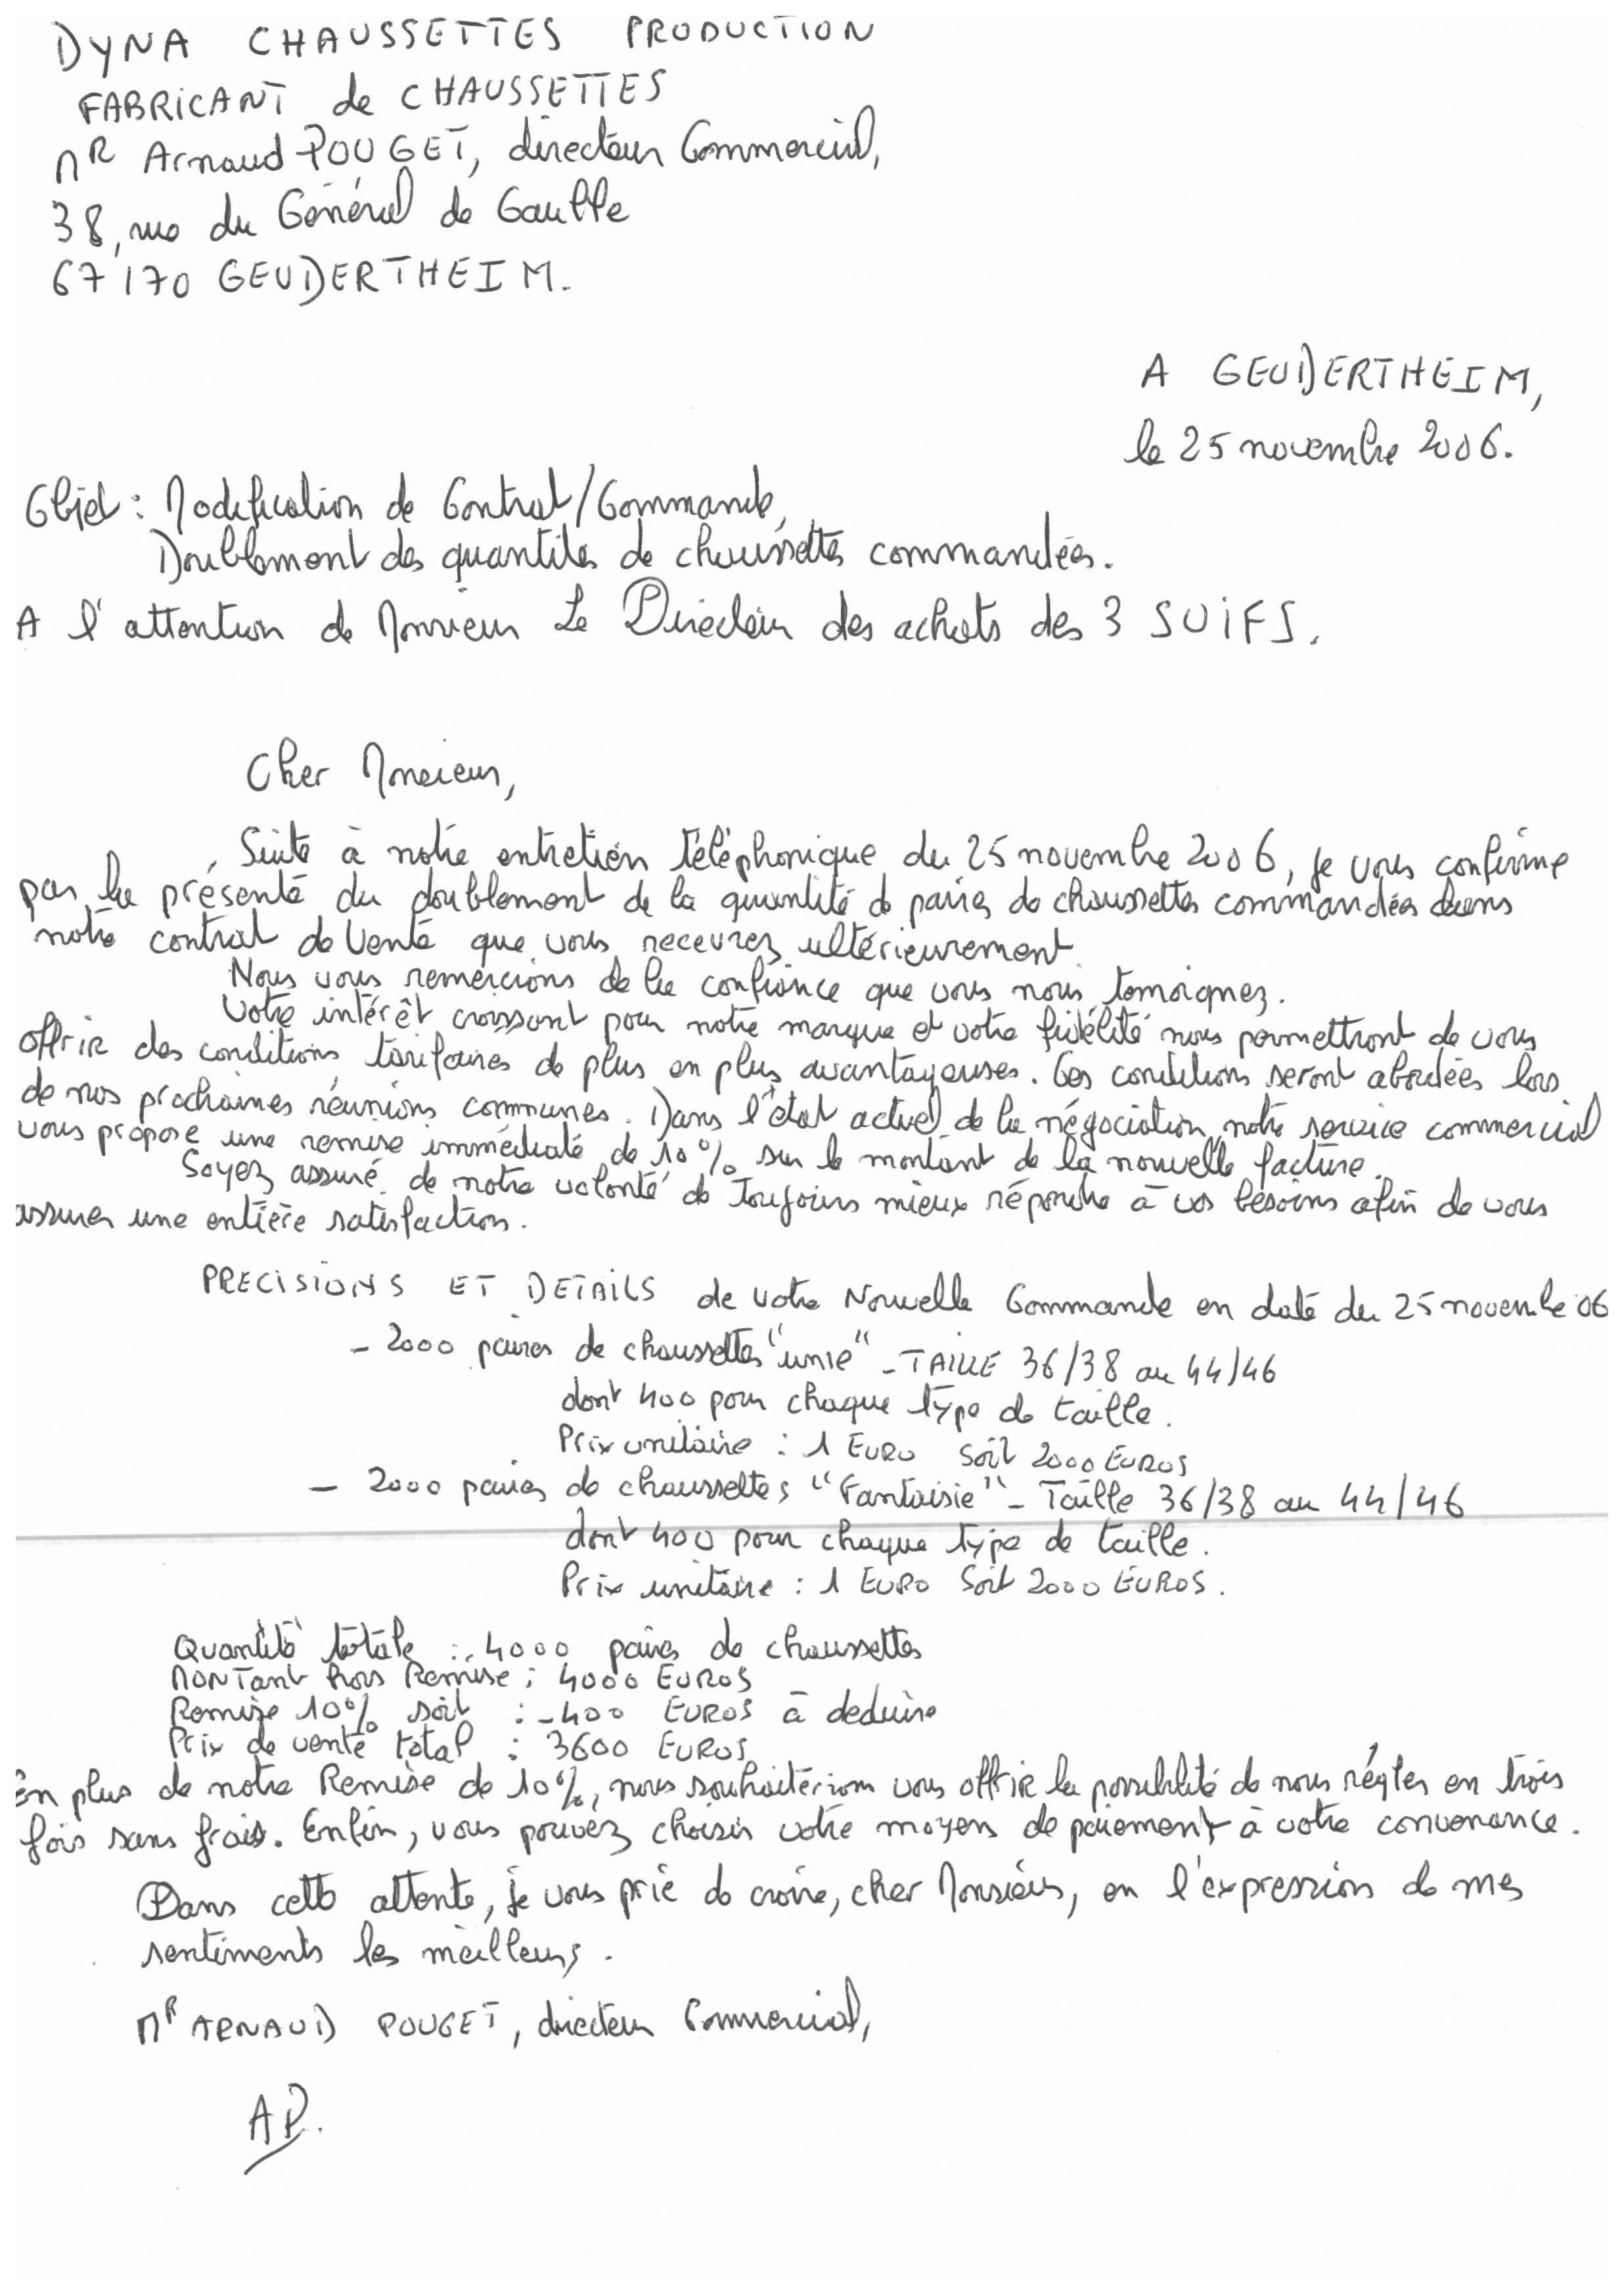 DYNA CHAUSSETTES PRODUCTION
FABRICANT de CHAUSSETTES
MR Arnaud POUGET, directeur Commercial,
38, rue du Général de Gaulle
67170 GEUDERTHEIM.
A GEUDERTHEIM,
le 25 novembre 2006.
Objet : Modification de Contrat/Commande,
Doublement des quantités de chaussettes commandées.
A l'attention de Monsieur Le Directeur des achats des 3 SUIFS.
Cher Monsieur,
Suite à notre entretien téléphonique du 25 novembre 2006, je vous confirme
par la présente du doublement de la quantité de paires de chaussettes commandées dans
notre contrat de Vente que vous recevrez ultérieurement.
Nous vous remercions de la confiance que vous nous témoignez.
Votre intérêt croissant pour notre marque et votre fidélité nous permettront de vous
offrir des conditions tarifaires de plus en plus avantageuses. Ces conditions seront abordées lors
de nos prochaines réunions communes. Dans l'état actuel de la négociation, notre service commercial
vous propose une remise immédiate de 10% sur le montant de la nouvelle facture.
Soyez assuré de notre volonté de Toujours mieux répondre à vos besoins afin de vous
assurer une entière satisfaction.
PRECISIONS ET DETAILS de votre Nouvelle Commande en date du 25 novembre 06
- 2000 paires de chaussettes "unie" - TAILLE 36/38 au 44/46
dont 400 pour chaque type de taille.
Prix unitaire : 1 EURO Soit 2000 EUROS
- 2000 paires de chaussettes "Fantaisie" - Taille 36/38 au 44/46
dont 400 pour chaque type de taille.
Prix unitaire : 1 EURO Soit 2000 EUROS.
Quantité totale : 4000 paires de chaussettes
MONTant hors Remise : 4000 EUROS
Remise 10% soit : -400 EUROS à déduire
Prix de vente total : 3600 EUROS
En plus de notre Remise de 10%, nous souhaiterions vous offrir la possibilité de nous régler en trois
fois sans frais. Enfin, vous pouvez choisir votre moyens de paiement à votre convenance.
Dans cette attente, je vous prie de croire, cher Monsieur, en l'expression de mes
sentiments les meilleurs.
MR ARNAUD POUGET, directeur Commercial,
AP.